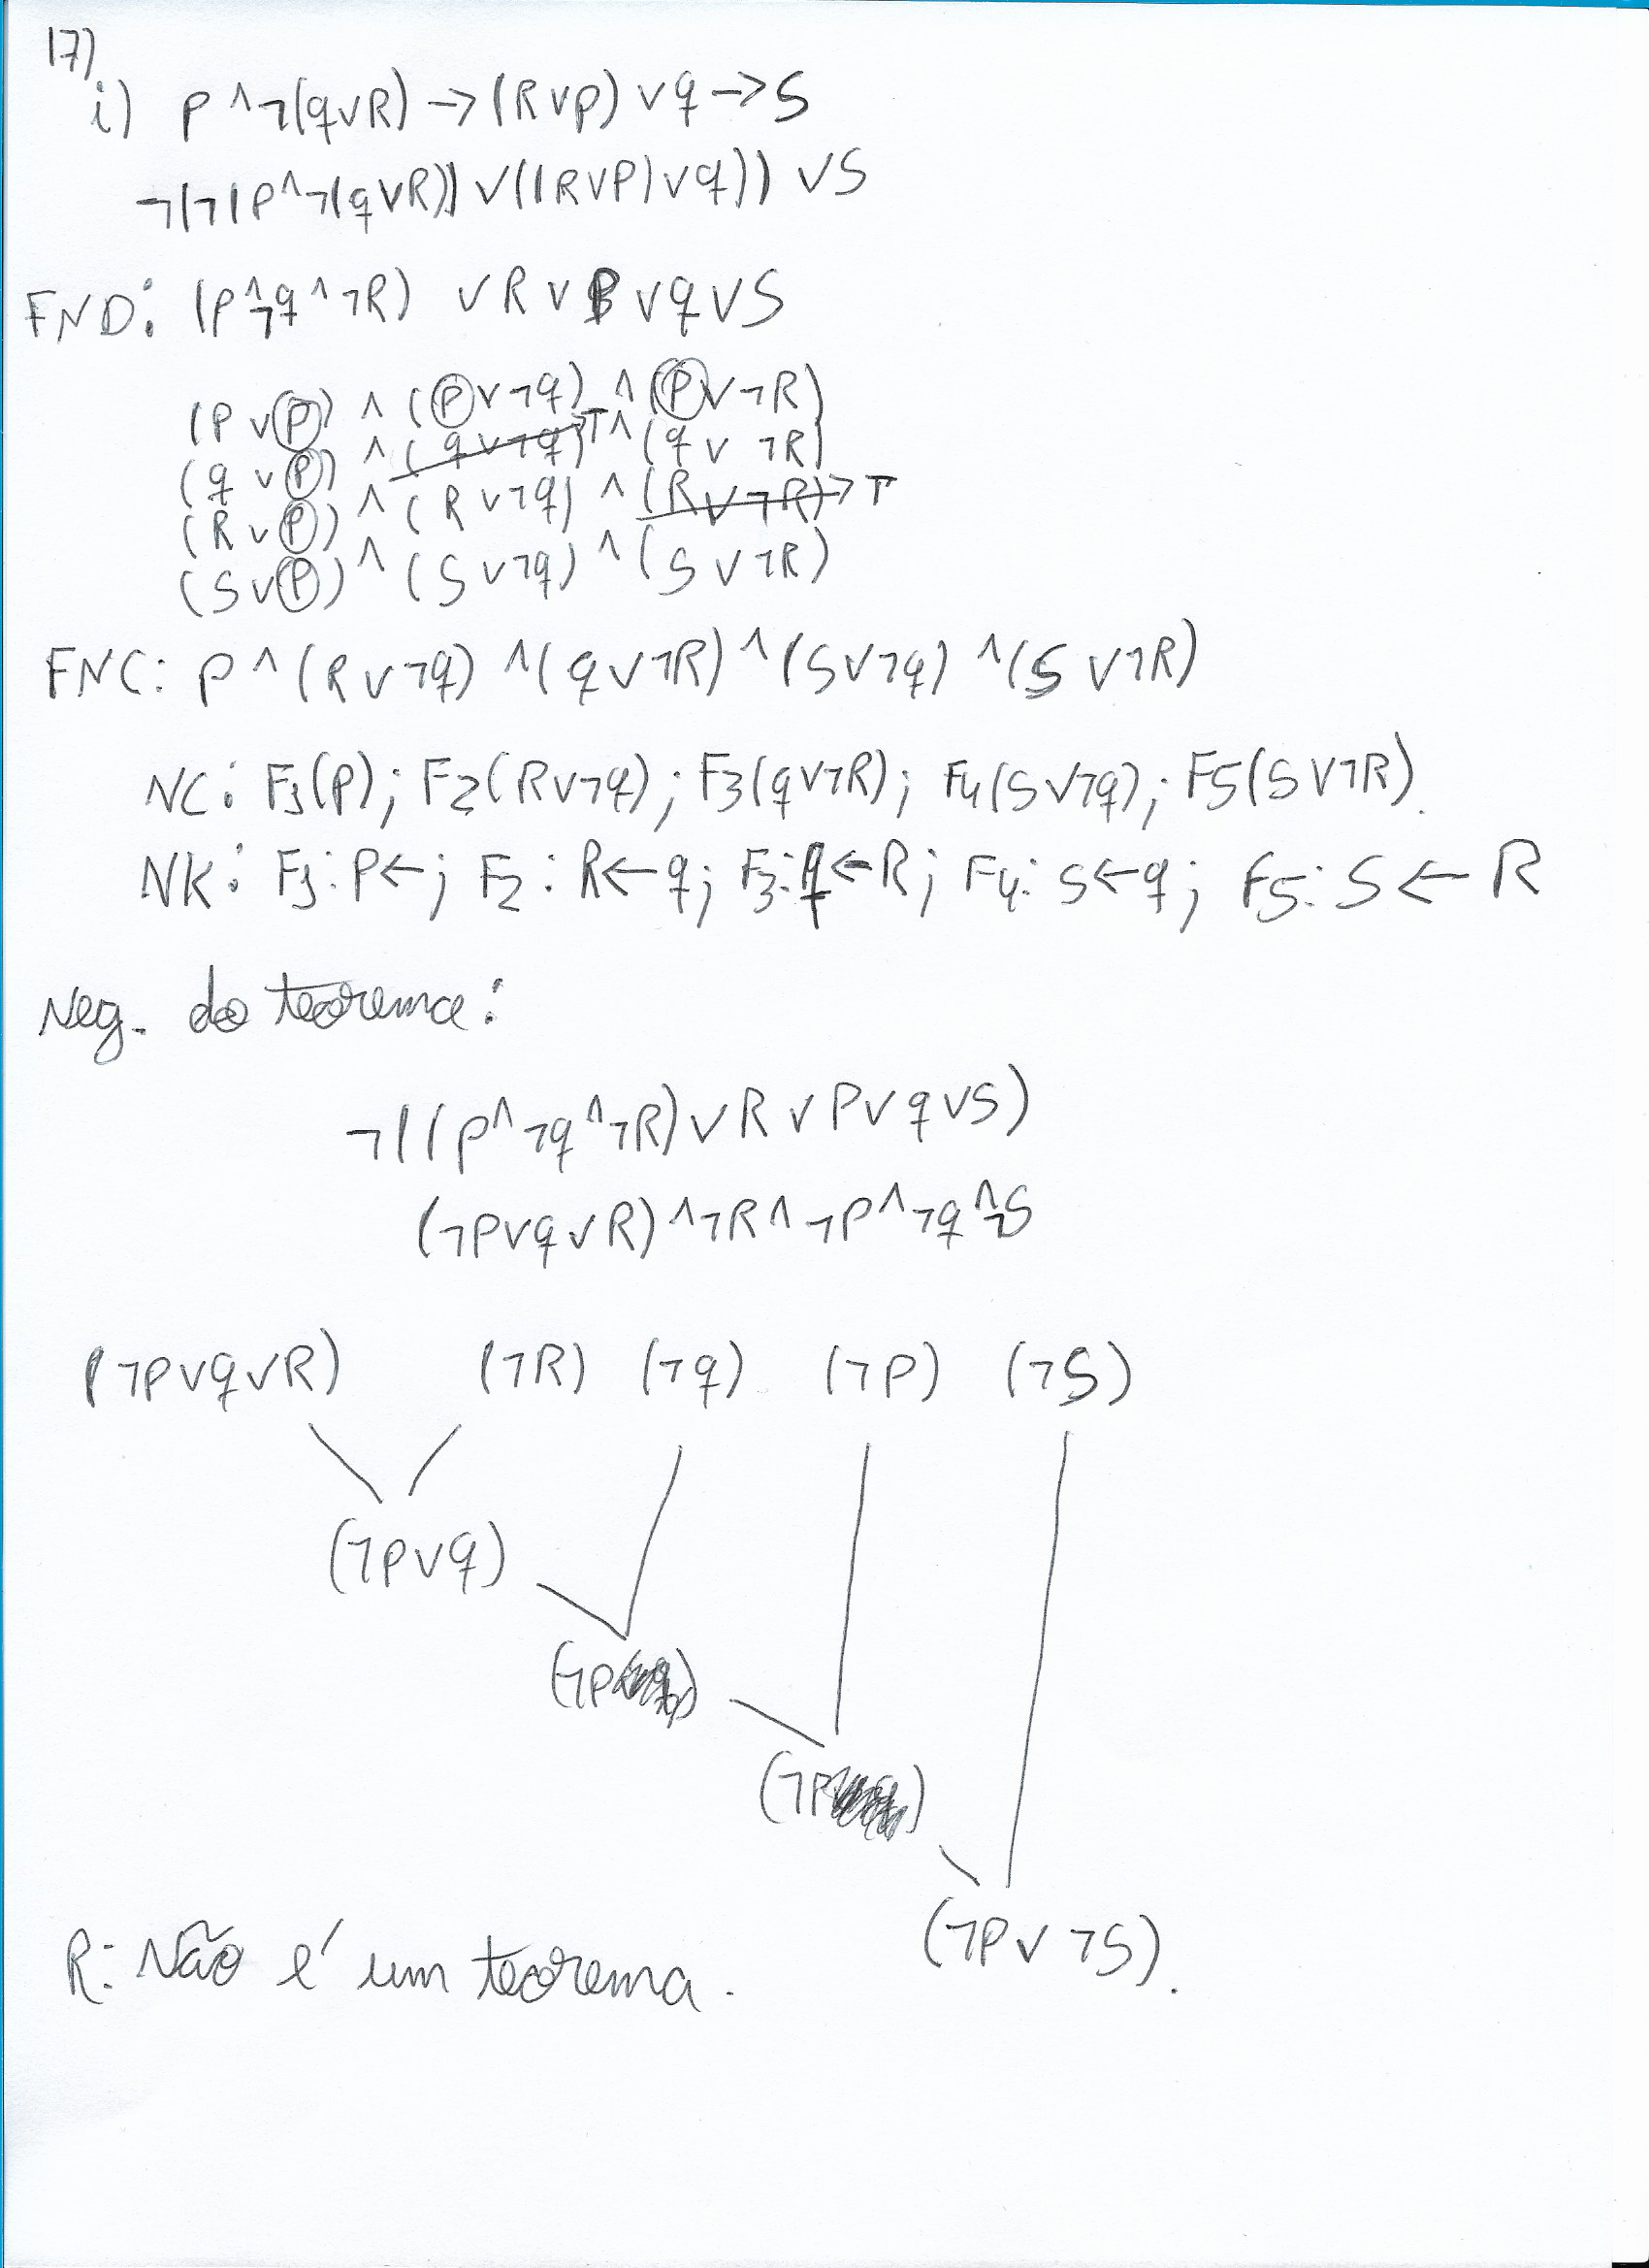 17)
i) P ∧ ¬(q ∨ R) → (R ∨ P) ∨ q → S
¬(¬(P ∧ ¬(q ∨ R)) ∨ ((R ∨ P) ∨ q)) ∨ S
FND: (P ∧ ¬q ∧ ¬R) ∨ R ∨ P ∨ q ∨ S
(P ∨ P) ∧ (P ∨ ¬q) ∧ (P ∨ ¬R)
(q ∨ P) ∧ (q ∨ ¬q) T ∧ (q ∨ ¬R)
(R ∨ P) ∧ (R ∨ ¬q) ∧ (R ∨ ¬R) → T
(S ∨ P) ∧ (S ∨ ¬q) ∧ (S ∨ ¬R)
FNC: P ∧ (R ∨ ¬q) ∧ (q ∨ ¬R) ∧ (S ∨ ¬q) ∧ (S ∨ ¬R)
NC: F1(P); F2(R ∨ ¬q); F3(q ∨ ¬R); F4(S ∨ ¬q); F5(S ∨ ¬R).
NK: F1: P ←; F2: R ← q; F3: q ← R; F4: S ← q; F5: S ← R
Neg. do teorema:
¬((P ∧ ¬q ∧ ¬R) ∨ R ∨ P ∨ q ∨ S)
(¬P ∨ q ∨ R) ∧ ¬R ∧ ¬P ∧ ¬q ∧ ¬S
(¬P ∨ q ∨ R) (¬R) (¬q) (¬P) (¬S)
(¬P ∨ q)
(¬P)
(¬P)
(¬P ∨ ¬S).
R: Não é um teorema.